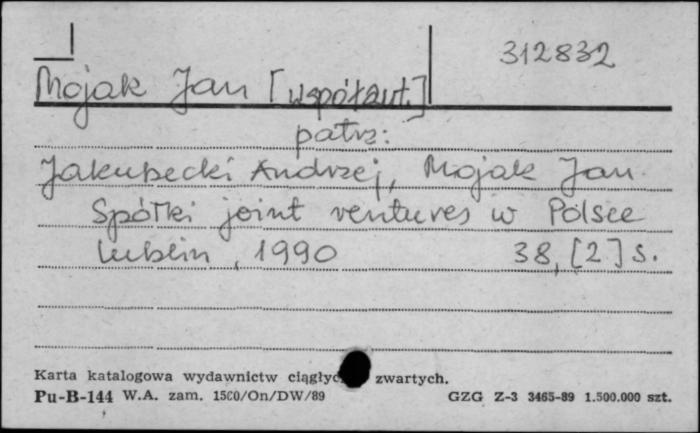 312832
Mojak Jan [współaut.]
patrz:
Jakubecki Andrzej, Mojak Jan
Spółki joint ventures w Polsce
Lublin, 1990 38, [2] s.
Karta katalogowa wydawnictw ciągłych zwartych.
Pu-B-144 W.A. zam. 1500/On/DW/89 GZG Z-3 3465-89 1.500.000 szt.